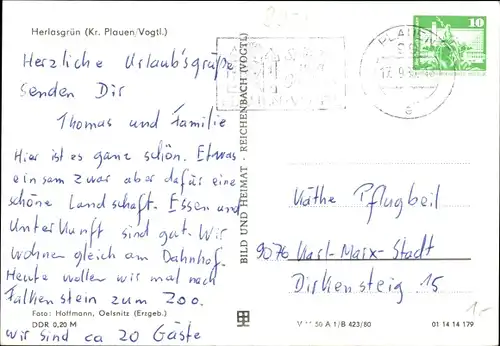 Herlasgrün (Kr. Plauen/Vogtl.)
Herzliche Urlaubsgrüße
senden Dir
Thomas und Familie
Hier ist es ganz schön. Etwas
einsam zwar aber dafür eine
schöne Landschaft. Essen und
Unterkunft sind gut. Wir
wohnen gleich am Bahnhof.
Heute wollen wir mal nach
Falkenstein zum Zoo.
Foto: Hoffmann, Oelsnitz (Erzgeb.)
DDR 0,20 M
wir sind ca 20 Gäste
BILD UND HEIMAT · REICHENBACH (VOGTL)
PLAUEN
17.9.
a
10
Käthe Pflugbeil
9076 Karl-Marx-Stadt
Dirkensteig 15
V 11 50 A 1/B 423/80
01 14 14 179
1,-